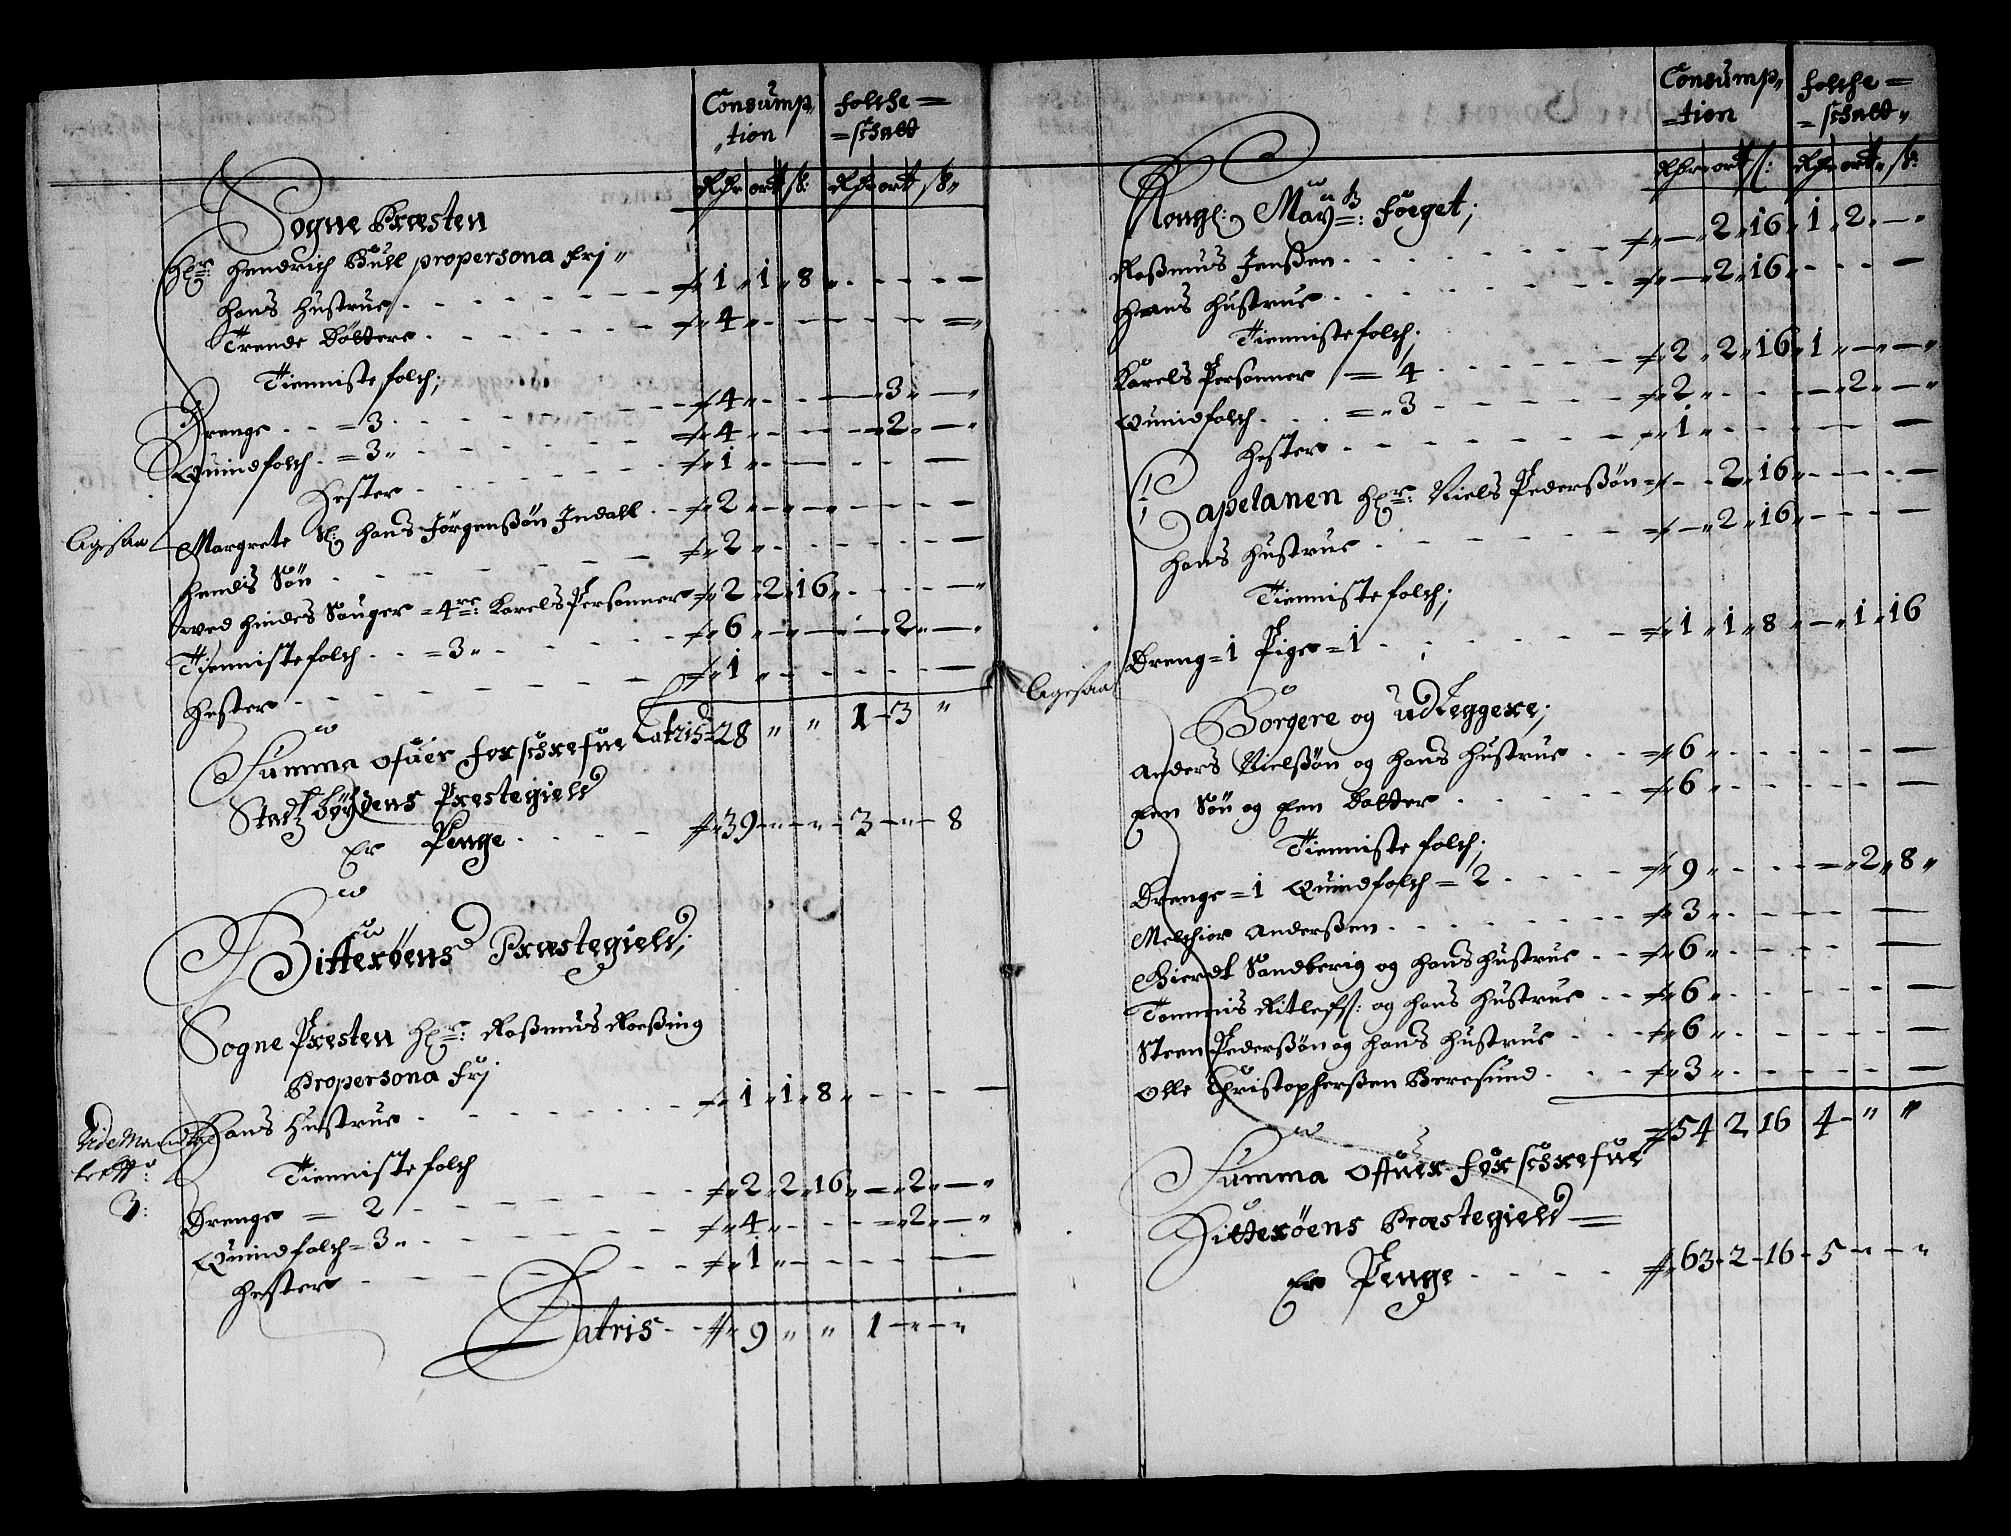 Consump„ folche=
„tion =schatt
Rdr ortt ß: Rdr ortt ß„
Sogne Præsten
Hr: Hendrich Bull propersona frj„
Hans Hustrue - - - - - - - 1 „ 1 „ 8 „ - - - —
Trende Døttere - - - - - - 4 „ - - - - - =„
Tienniste folch;
Drenge - - = 3 - - - - - - 4 „ - - - — „ 3 „ — „
Quindfolch - = 3 „ - - - - - 4 „ - - - = 2 „ — „
Hester - - - - - 1 „ - — - - —
Agesaa
Margrete Sl: Hans Jørgensøn Jndall - 2 „ - „ - „ - - —
Hendis Søn - - - - - - - 2 „ - - - - - —
wed hindes Sauger = 4re: Karels Personner 2 „ 2 „ 16 „ - - - - — „
Tiennistefolch - - = 3 „ - - - - 6 „ - „ — - „ 2 „ — „
Hester - - - - - - - 1 „ - - - - - —
Latris 28 „ „ 1 - 3 „
Summa ofuer forschrefne
Stadtzbøÿdens Prestegield
Er Penge - - - - 39 - „ - „ - 3 - „ - 8
Hitterøens Præstegield;
Sogne Presten Hr: Rasmus Roesing
Propersona frj
Hans Hustrue - - - - - - - 1 „ 1 „ 8 „ - - - —
Tienniste folch
Drenge = 2 - - - - - - 2 „ 2 „ 16 „ = „ 2 „ — „
Quindfolch = 3 „ - - - - - 4 „ - - - = „ 2 „ — „
Hester - - - - - - - 1 „ - - - - —
Latris - - 9 „ „ 1 - „ - „
Consump„ folche=
=tion =schatt„
Rdr ortt ß: Rdr ortt „ ß:
Kongl: Maytz: foeget;
Rasmus Jensen - - - - - - — „ 2 „ 16 „ 1 „ 2 „ — „
Hans Hustrue - - - - - - - — „ 2 „ 16 „ - - - —
Tienniste folch;
Karels Personner = 4 - - - - - 2 „ 2 „ 16 „ 1 „ — „ — „
Quindfolch - - - = „ 3 - - - - - 2 „ - - - - — „ 2 „ — „
Hester - - - - - - - 1 „ - - - - —
Capelanen Hr: Niels Pedersøn - - 2 „ 16 „ - - - - —
Hans Hustrue - - - - - - — „ 2 „ 16 „ - - - —
Tienniste folch;
Dreng = 1 Pige = 1 - - - - - 1 „ 1 „ 8 „ — „ 1 „ 16
Agesaa
Borgere og Udleggere;
Anders Nielsøn og Hans Hustrue - - 6 „ - - - - - —
Een Søn og Een Datter - - - - 6 „ - - - - - —
Tienniste folch;
Drenge = 1 Quindfolch = 2 - - - - 9 „ - - - = „ 2 „ 8 „
Melchior Andersen - - - - - - - 3 „ - - - - —
Giertt Sandberig og Hans Hustrue - - 6 „ - - - - —
Tonnis Ritlefs: og Hans Hustrue - - 6 „ - - - - - —
Steen Pedersøn og Hans Hustrue - - - 6 „ - - - - - —
Olle Christophersen Beresund - - - 3 „ - - - - - —
54 „ 2 „ 16 4 - „ „
Summa offuer forschrefne
Hitterøens Præstegield =
Er Penge - - - - 63 - 2 - 16 - 5 - „ - - „